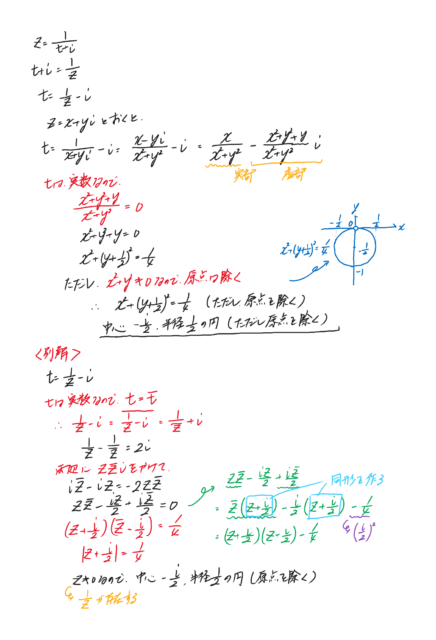 z = 1/(t+i)
t+i = 1/z
t = 1/z - i
z = x+yi とおくと、
t = 1/(x+yi) - i = (x-yi)/(x²+y²) - i = x/(x²+y²) - (x²+y²+y)/(x²+y²) i
実部 虚部
tは実数なので、
(x²+y²+y)/(x²+y²) = 0
x²+y²+y = 0
x²+(y+1/2)² = 1/4
ただし、x²+y²≠0なので、原点は除く
∴ x²+(y+1/2)² = 1/4 (ただし、原点を除く)
中心 -i/2, 半径 1/2 の円 (ただし原点を除く)
y
-1/2 0 1/2 x
x²+(y+1/2)² = 1/4
-1/2
-1
<別解>
t = 1/z - i
tは実数なので、t = t̅
∴ 1/z - i = \overline{1/z - i} = 1/z̅ + i
1/z - 1/z̅ = 2i
両辺に zz̅i をかけて、
iz̅ - iz = -2zz̅
zz̅ - iz/2 + iz̅/2 = 0
(z + i/2)(z̅ - i/2) = 1/4
|z + i/2| = 1/4
zz̅ - iz/2 + iz̅/2
= z̅(z + i/2) - i/2(z + i/2) - 1/4
同形を作る
(i/2)²
= (z + i/2)(z̅ - i/2) - 1/4
z≠0なので、中心 -i/2, 半径 1/2 の円 (原点を除く)
1/z が存在する